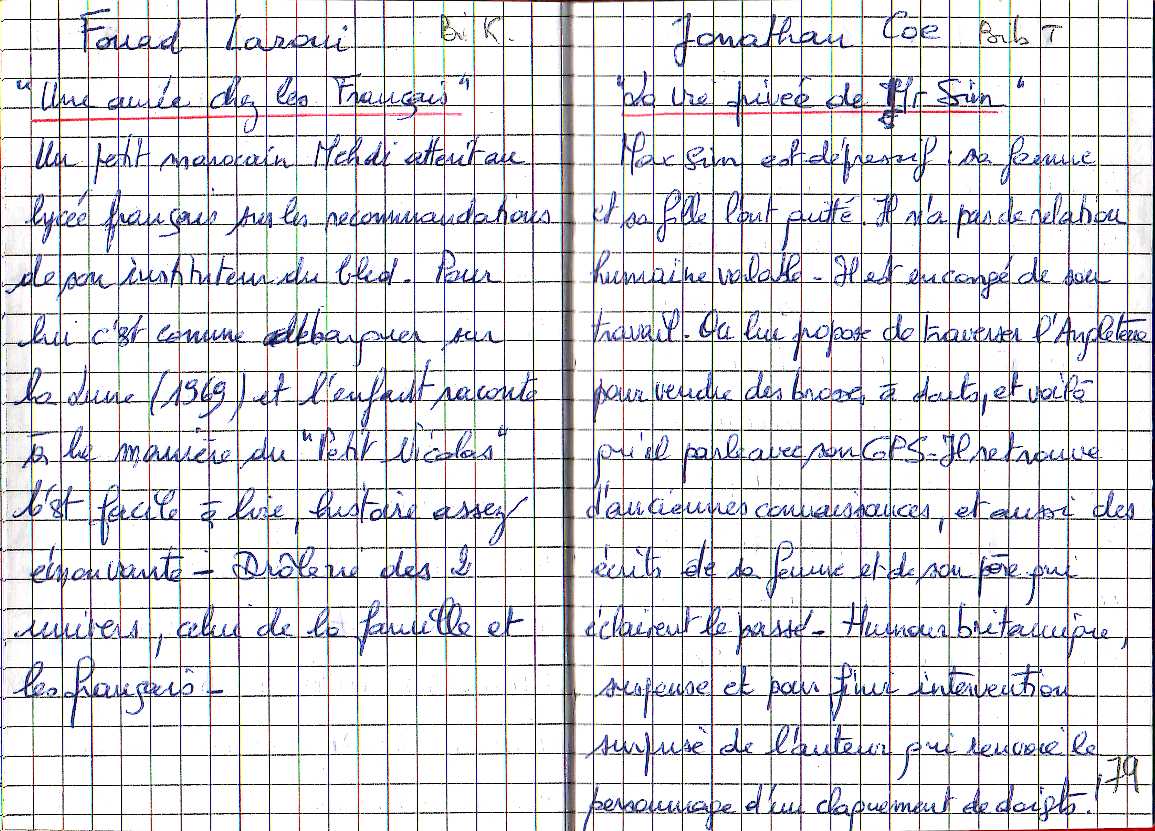 Fouad Laroui Bib K.
"Une année chez les Français"
Un petit marocain Mehdi atterit au
lycée français sur les recommandations
de son instituteur du bled. Pour
lui c'est comme débarquer sur
la Lune (1969) et l'enfant raconte
à la manière du "Petit Nicolas"
C'est facile à lire, histoire assez
émouvante - Drôlerie des 2
univers, celui de la famille et
les français -
Jonathan Coe Bib T
"La vie privée de Mr Sim"
Max Sim est dépressif : sa femme
et sa fille l'ont quitté. Il n'a pas de relation
humaine valable - Il est en congé de son
travail. On lui propose de traverser l'Angleterre
pour vendre des brosses à dents, et voilà
qu'il parle avec son GPS - Il retrouve
d'anciennes connaissances, et aussi des
écrits de sa femme et de son père qui
éclairent le passé - Humour britannique,
suspense et pour finir intervention
surprise de l'auteur qui renvoie le
personnage d'un claquement de doigts.
79